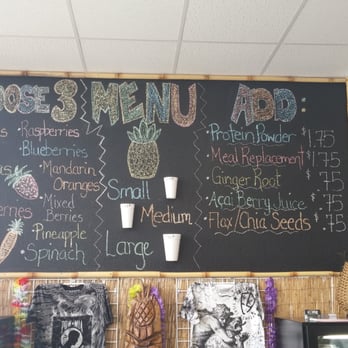 OOSE 3
Raspberries
Blueberries
Mandarin
Oranges
Mixed
Berries
Pineapple
Spinach
MENU
Small
Medium
Large
ADD:
Protein Powder $1.75
Meal Replacement $1.75
Ginger Root $.75
Açaí Berry Juice $.75
Flax/Chia Seeds $.75